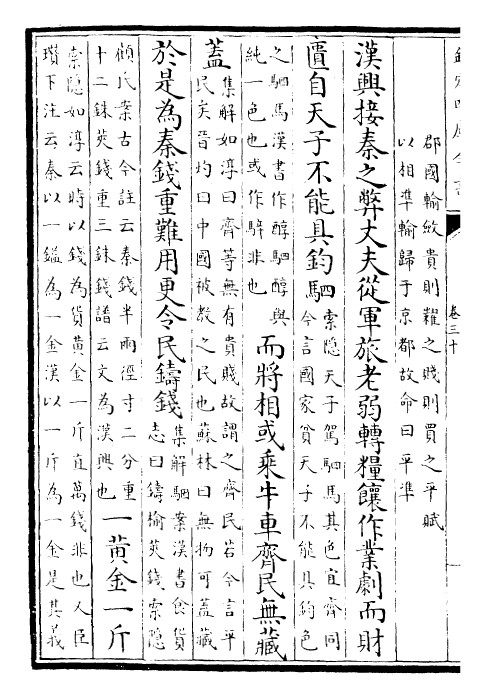 欽定四庫全書
卷三十
郡國輸斂貴則糶之賤則買之平賦
以相準輸歸于京都故命曰平準
漢興接秦之弊丈夫從軍旅老弱轉糧饟作業劇而財
匱自天子不能具鈞駟索隐天子駕駟馬其色宜齊同
今言國家貧天子不能具鈞色
之駟馬漢書作醇駟醇與
純一色也或作騂非也
而將相或乘牛車齊民無藏
蓋集解如淳曰齊等無有貴賤故謂之齊民若今言平
民矣晉灼曰中國被教之民也蘇林曰無物可蓋藏
於是為秦錢重難用更令民鑄錢集解駟案漢書食貨
志曰鑄榆莢錢索隐
顧氏案古今註云秦錢半兩徑寸二分重
十二銖莢錢重三銖錢譜云文為漢興也
一黄金一斤
索隐如淳云時以錢為貨黄金一斤直萬錢非也又臣
瓉下注云秦以一鎰為一金漢以一斤為一金是其義